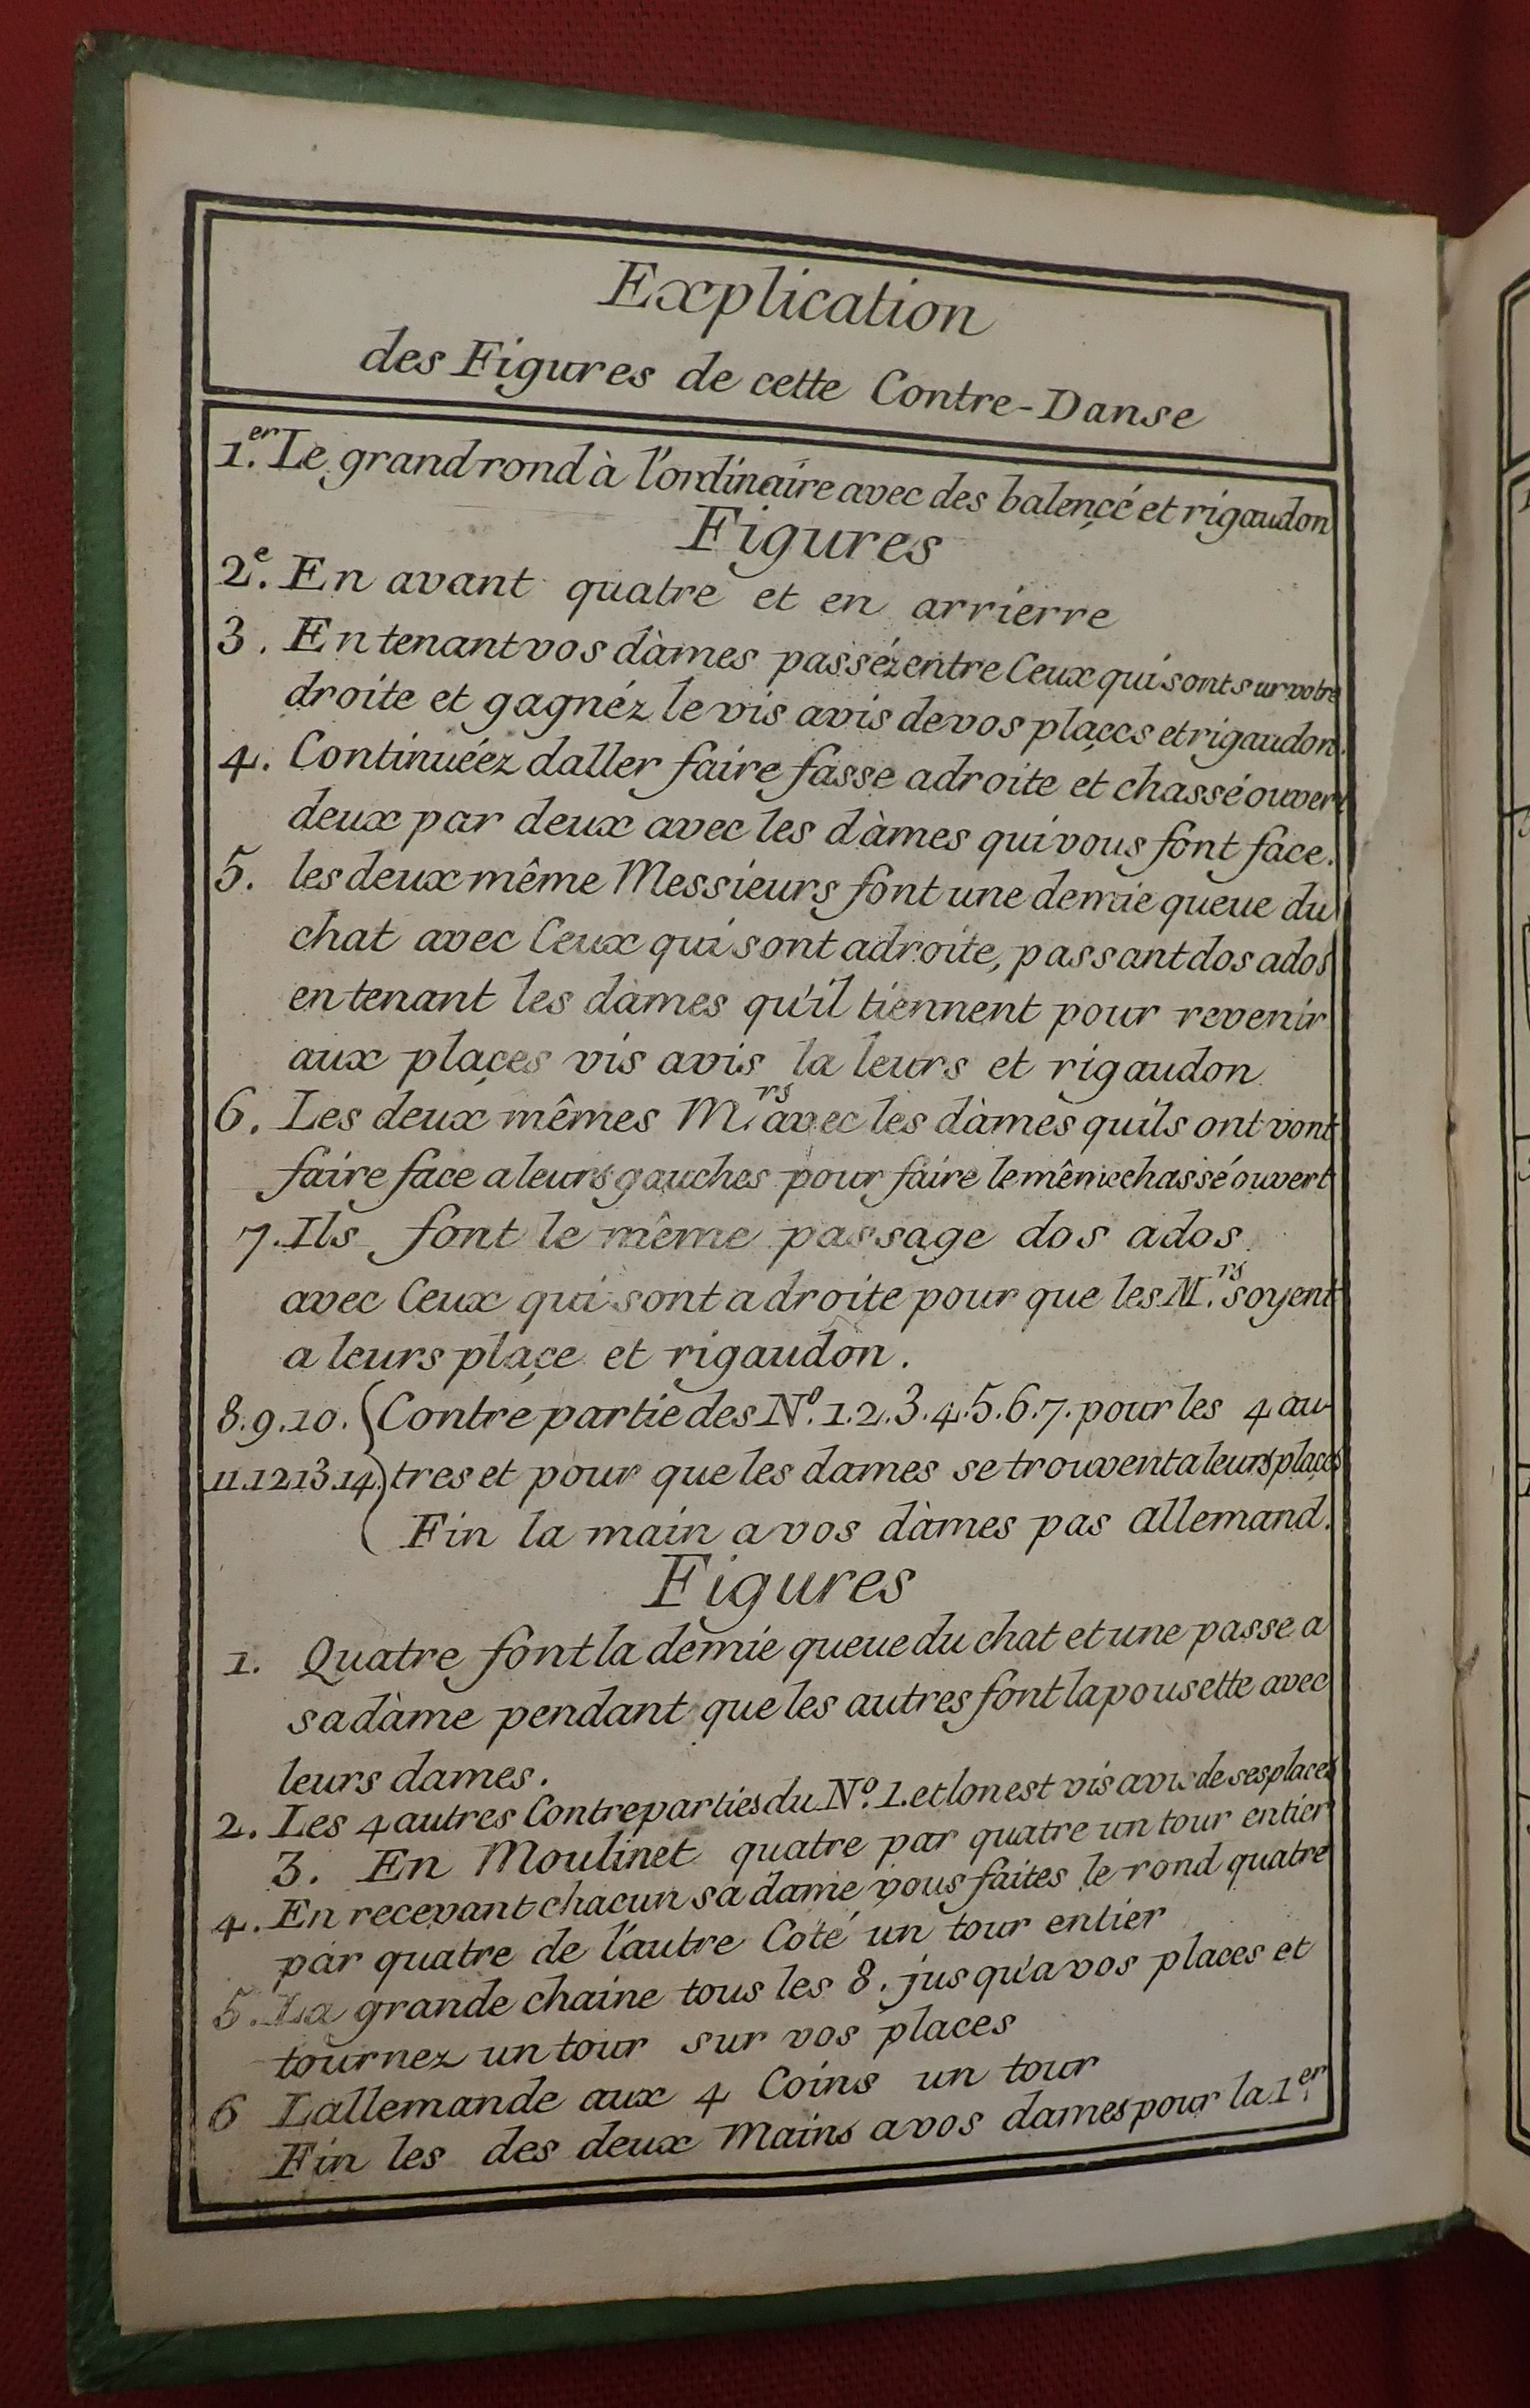 Explication
des Figures de cette Contre-Danse
1.er Le grand rond à l'ordinaire avec des balençé et rigaudon
Figures
2.e En avant quatre et en arrierre
3. En tenant vos dàmes passéz entre Ceux qui sont sur votre
droite et gagnéz le vis avis de vos plaçes et rigaudon.
4. Continuéez daller faire fasse adroite et chassé ouvert
deux par deux avec les dàmes qui vous font face.
5. les deux même Messieurs font une demie queue du
chat avec Ceux qui sont adroite, passant dos ados
en tenant les dàmes qu'il tiennent pour revenir
aux plaçes vis avis la leurs et rigaudon
6. Les deux mêmes M.rs avec les dàmes quils ont vont
faire face a leurs gauches pour faire le même chassé ouvert
7. Ils font le même passage dos ados
avec Ceux qui sont a droite pour que les M.rs soyent
a leurs plaçe et rigaudon.
8.9.10. Contre partie des N.º 1.2.3.4.5.6.7. pour les 4 au-
11.12.13.14. tres et pour que les dames se trouvent a leurs places
Fin la main a vos dàmes pas allemand.
Figures
1. Quatre font la demie queue du chat et une passe a
sa dàme pendant que les autres font la pousette avec
leurs dames.
2. Les 4 autres Contreparties du N.º 1. et lon est vis avis de ses places
3. En Moulinet quatre par quatre un tour entier
4. En recevant chacun sa dame vous faites le rond quatre
par quatre de l'autre Coté un tour entier
5. La grande chaine tous les 8. jusqu'a vos places et
tournez un tour sur vos places
6 Lallemande aux 4 Coins un tour
Fin les des deux Mains a vos dames pour la 1.er